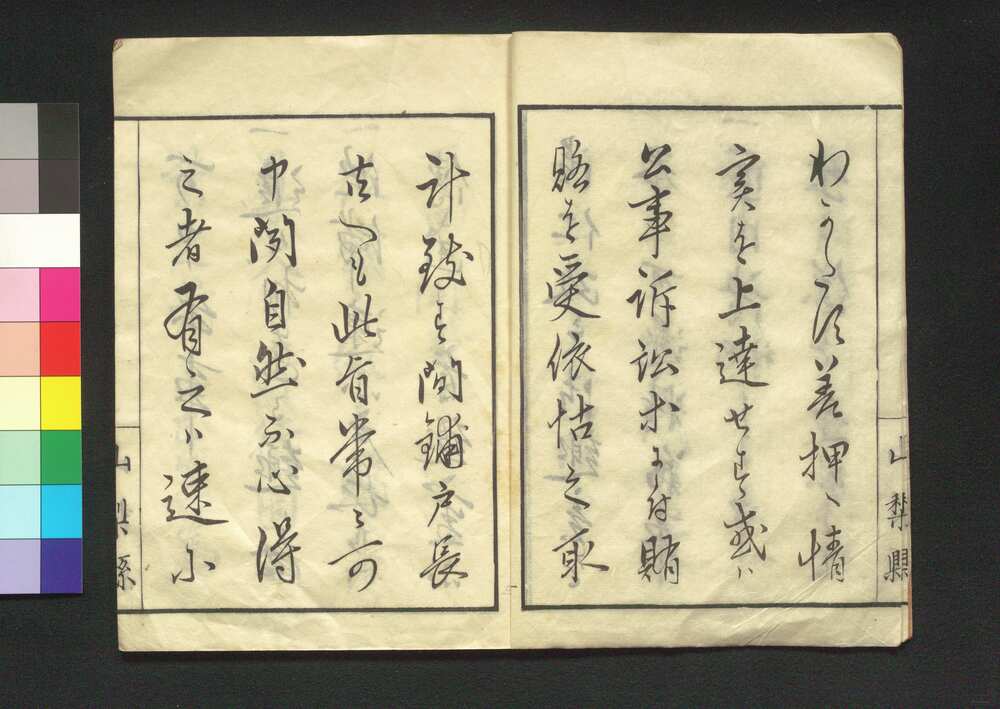 わかたす差押ヘ情
実を上達せす或ハ
公事訴訟ホニ付賄
賂を受依怙之取
計致す間鋪戸長
古へも此旨常々可
申聞自然不心得
之者有之ハ速ニ
山梨縣
山梨縣